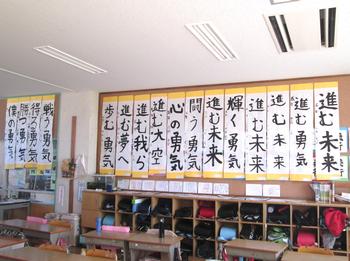 進む未来
進む勇気
進む未来
進む未来
輝く勇気
進む未来
闘う勇気
心の勇気
進む大空
進む我ら
進む夢へ
歩む勇気
戦う勇気
得る勇気
勝つ勇気
僕の勇気